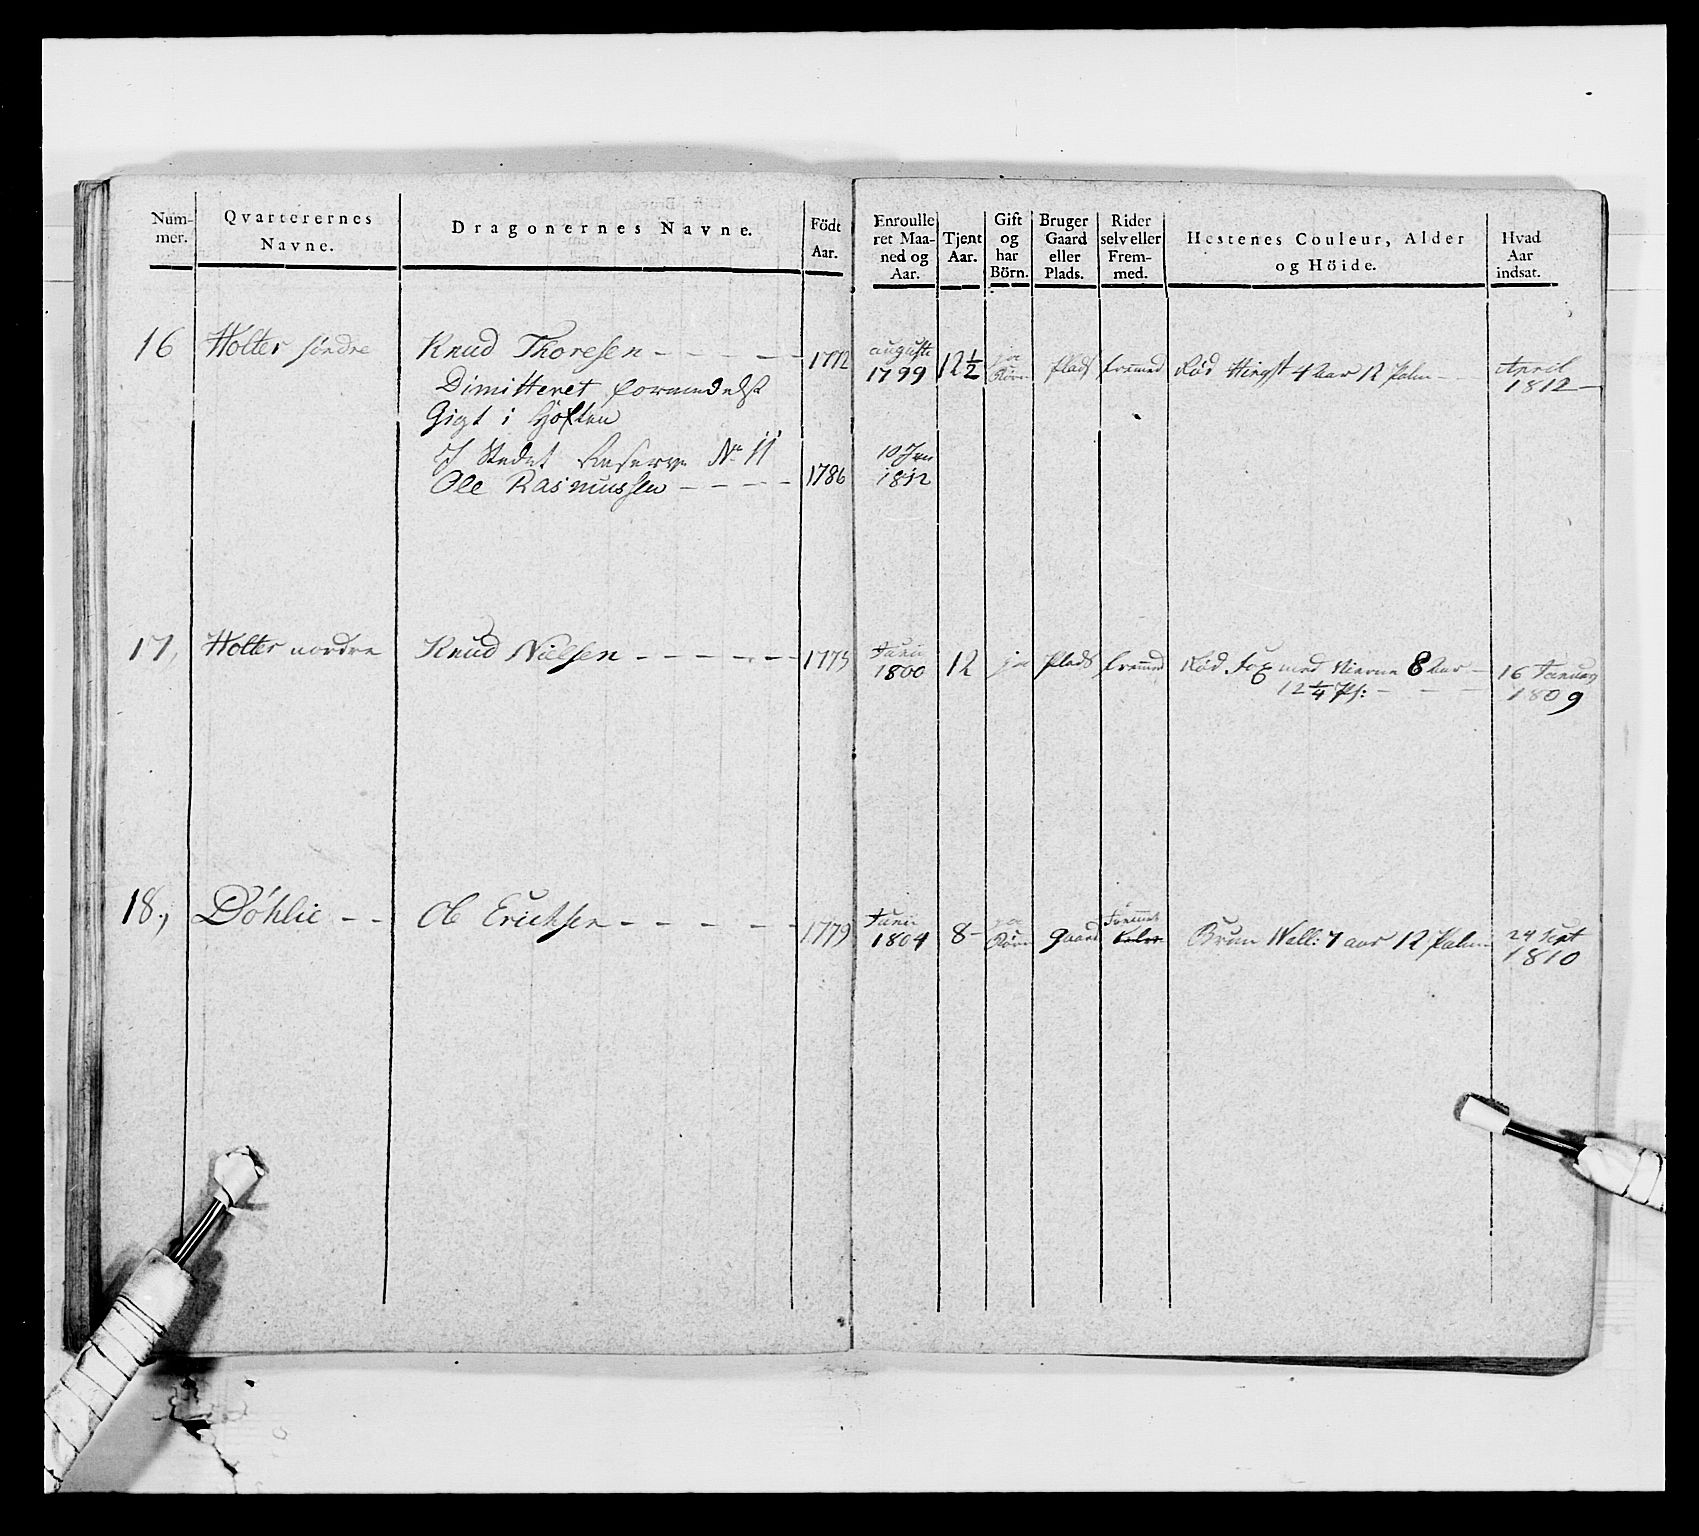 Num-
mer.
Qvarterernes
Navne.
Dragonernes Navne.
Födt
Aar.
Enroulle
ret Maa-
ned og
Aar.
Tjent
Aar.
Gift
og
har
Börn.
Bruger
Gaard
eller
Plads.
Rider
selv eller
Frem-
med.
Hestenes Couleur, Alder
og Höide.
Hvad
Aar
indsat.
16 Holter söndre Knud Thoresen 1772 august 1799 12 1/2 ja Börn Plads fremmed Rød Hingst 4 Aar 12 Palm April 1812
Dimitteret formedelst
Gigt i Hoften
I Stedet Reserve No 11
Ole Rasmussen 1786 10 Jun 1812
17, Holter nordre Knud Nielsen 1775 Junii 1800 12 ja Plads fremmed Rød 8 Aar 16 Januar
12 1/4 P: 1809
18., Döhlie Ole Erichsen 1779 Junii 1804 8 ja Börn gaard Fremmed Brun Wall: 7 aar 12 Palm 24 Sept
1810